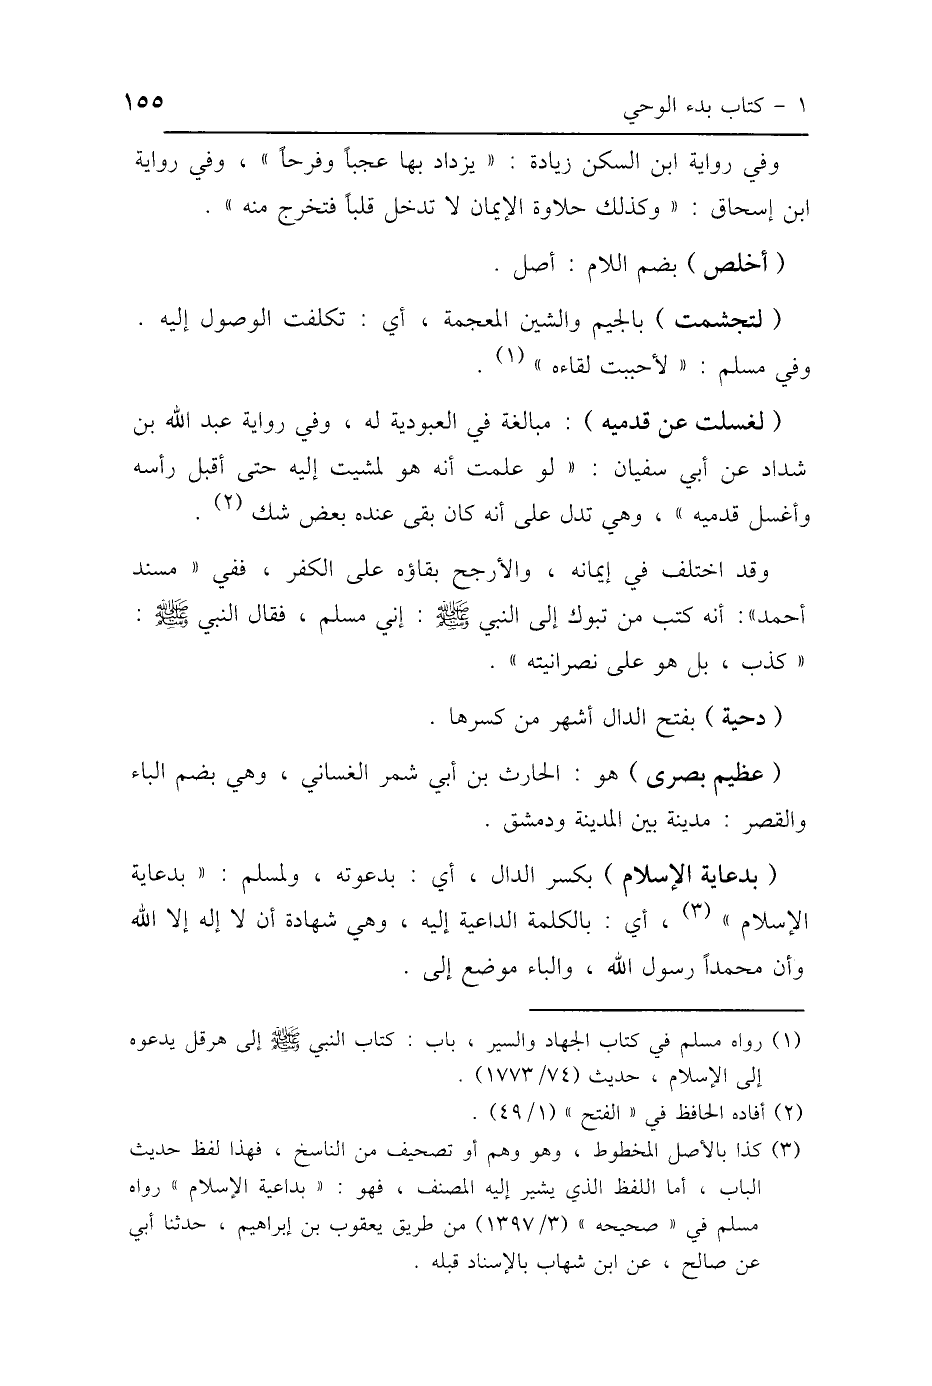 ١ - كتاب بدء الوحي ١٥٥
وفي رواية ابن السكن زيادة : « يزداد بها عجباً وفرحاً » ، وفي رواية
ابن إسحاق : « وكذلك حلاوة الإيمان لا تدخل قلباً فتخرج منه » .
( أخلص ) بضم اللام : أصل .
( لتجشمت ) بالجيم والشين المعجمة ، أي : تكلفت الوصول إليه .
وفي مسلم : « لأحببت لقاءه » (١) .
( لغسلت عن قدميه ) : مبالغة في العبودية له ، وفي رواية عبد الله بن
شداد عن أبي سفيان : « لو علمت أنه هو لمشيت إليه حتى أقبل رأسه
وأغسل قدميه » ، وهي تدل على أنه كان بقى عنده بعض شك (٢) .
وقد اختلف في إيمانه ، والأرجح بقاؤه على الكفر ، ففي « مسند
أحمد»: أنه كتب من تبوك إلى النبي ﷺ : إني مسلم ، فقال النبي ﷺ :
« كذب ، بل هو على نصرانيته » .
( دحية ) بفتح الدال أشهر من كسرها .
( عظيم بصرى ) هو : الحارث بن أبي شمر الغساني ، وهي بضم الباء
والقصر : مدينة بين المدينة ودمشق .
( بدعاية الإسلام ) بكسر الدال ، أي : بدعوته ، ولمسلم : « بدعاية
الإسلام » (٣) ، أي : بالكلمة الداعية إليه ، وهي شهادة أن لا إله إلا الله
وأن محمداً رسول الله ، والباء موضع إلى .
(١) رواه مسلم في كتاب الجهاد والسير ، باب : كتاب النبي ﷺ إلى هرقل يدعوه
إلى الإسلام ، حديث (١٧٧٣/٧٤) .
(٢) أفاده الحافظ في « الفتح » (٤٩/١) .
(٣) كذا بالأصل المخطوط ، وهو وهم أو تصحيف من الناسخ ، فهذا لفظ حديث
الباب ، أما اللفظ الذي يشير إليه المصنف ، فهو : « بداعية الإسلام » رواه
مسلم في « صحيحه » (١٣٩٧/٣) من طريق يعقوب بن إبراهيم ، حدثنا أبي
عن صالح ، عن ابن شهاب بالإسناد قبله .